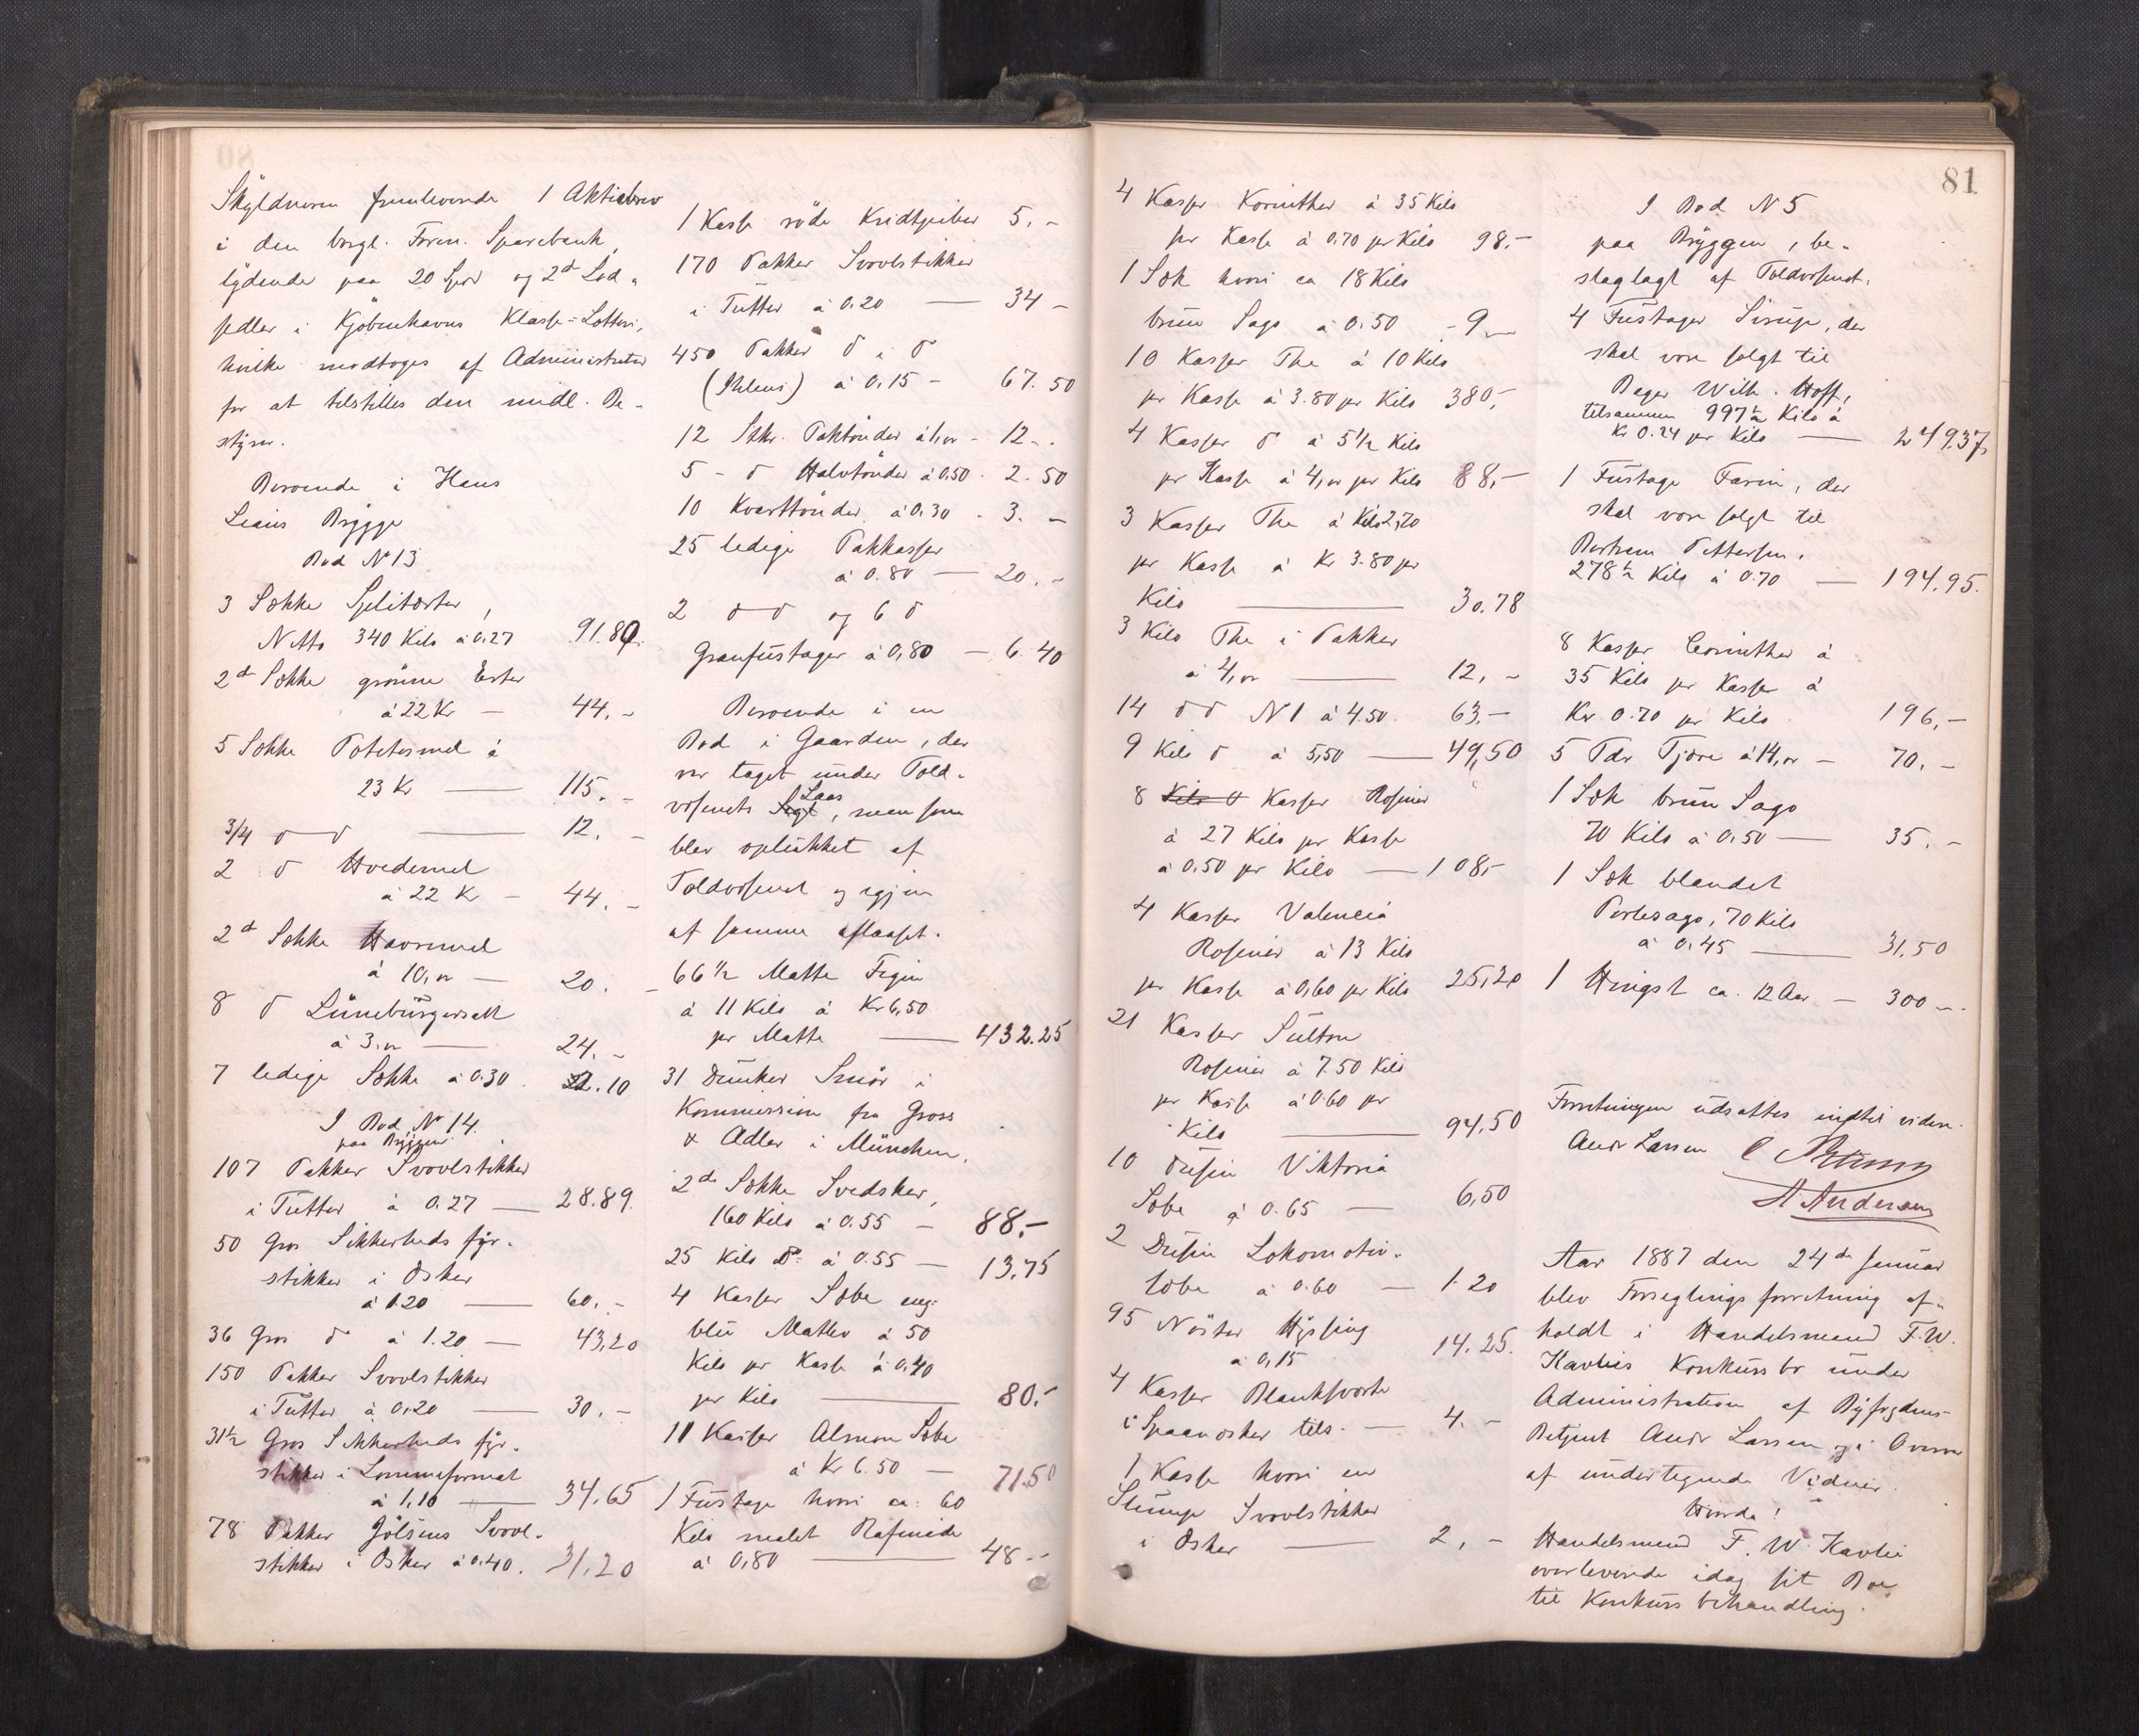 Skyldneren fremleverede 1 Aktiebrev
i den borgl. Foren. Sparebank,
lydende paa 20 Spd og 2d Lod-
sedler i Kjöbenhavns Klasse-Lotteri,
hvilke modtoges af Administrator
for at tilstilles den midl. Be-
styrer.
Beroende i Hans
Leaius Brygge
Bod N 13
3 Sække Splitærter,
Netto 340 Kilo à 0.27 91.80
2d Sække grönne Erter
à 22 Kr — 44.-
5 Sække Potetesmel à
23 Kr — 115.-
3/4 d d — 12.-
2 d Hvedemel
à 22 Kr — 44.-
2d Sække Havremel
à 10,00 — 20.-
8 d Lüneburgersalt
à 3.00 — 24.-
7 ledige Sække à 0.30. 2.10
I Bod N 14.
paa Bryggen
107 Pakker Svovlstikker
i Tutter à 0.27 — 28.89.
50 Gros Sikkerheds fyr-
stikker i Æsker
à 1.20 — 60.-
36 Gros d à 1.20 — 43,20
150 Pakker Svovlstikker
i Tutter à 0.20 — 30.-
31 1/2 Gros Sikkerheds fyr-
stikker i Lommeformat
à 1,10 — 34.65
78 Pakker Jölsens Svovl-
stikker i Æsker à 0.40. 31.20
1 Kasse röde Kridtpiber 5.-
170 Pakker Svovlstikker
i Tutter à 0.20 — 34-
450 Pakker d i d
(Ihlens) à 0,15 - 67.50
12 Stkr. Paktönder à 1,00 - 12-.
5 - d Halvtönder à 0,50 - 2.50
10 Kvarttönder à 0.30 - 3.-
25 ledige Pakkasser
à 0.80 — 20.-
2 d d og 6 d
Granfustager à 0,80 — 6.40
Beroende i en
Bod i Gaarden, der
var taget under Told-
væsenets Segl Laas, men som
blev oplukket af
Toldvæsenet og igjen
af samme aflaaset.
66 1/2 Matte Figen
à 11 Kilo à Kr 6,50
pr Matte — 432.25
31 Dunker Smör i
Kommission fra Gross
& Adler i München.
2d Sække Svedsker,
160 Kilo à 0.55 — 88.-
25 Kilo d: à 0.55 — 13,75
4 Kasser Sæbe eng.
blü Matter à 50
Kilo pr Kasse à 0,40
pr Kilo — 80.-
11 Kasser Almen Sæbe
à Kr 6.50 — 71.50
1 Fustage hvori ca: 60
Kilo malet Rafinade
à 0,80 — 48--
81
4 Kasser Korinther à 35 Kilo
pr Kasse à 0.70 pr Kilo 98.-
1 Sæk hvori ca 18 Kilo
brun Sago à 0.50 - 9.-
10 Kasser The à 10 Kilo
pr Kasse à 3.80 pr Kilo 380,-
4 Kasser d à 5 1/2 Kilo
pr Kasse à 4,00 pr Kilo 88.-
3 Kasser The à Kilo 2,70
pr Kasse à Kr 3.80 pr
Kilo — 30.78
3 Kilo The i Pakker
à 4,00 — 12.-
14 d d N 1 à 4.50. 63.-
9 Kilo d à 5,50 — 49,50
8 Kilo d Kasser Rosiner
à 27 Kilo pr Kasse
à 0.50 pr Kilo — 108.-
4 Kasser Valencia
Rosiner à 13 Kilo
pr Kasse à 0,60 pr Kilo 25,20
21 Kasser Sultan
Rosiner à 7.50 Kilo
pr Kasse à 0.60 pr
Kilo — 94,50
10 Dusin Viktoria
Sæbe à 0.65 — 6,50
2 Dusin Lokomotiv-
sæbe à 0.60 — 1.20
95 Nöster Hyssing
à 0,15 14.25.
4 Kasser Blanksværte
i Spaanæsker tils. — 4.-
1 Kasse hvori en
Slump Svovlstikker
i Æsker — 2,-
I Bod N 5
paa Bryggen, be-
slaglagt af Toldvæsenet.
4 Fustager Sirup, der
skal være solgt til
Bager Wilh. Hoff,
tilsammen 997 1/2 Kilo à
Kr 0.24 pr Kilo — 249.37
1 Fustage Farin, der
skal være solgt til
Bertram Pettersen.
278 1/2 Kilo à 0.70 — 194.95.
8 Kasser Corinther à
35 Kilo pr Kasse à
Kr 0.70 pr Kilo 196.-
5 Tdr Tjære à 14,00 — 70.-
1 Sæk brun Sago
70 Kilo à 0,50 — 35.-
1 Sæk blandet
Perlesago, 70 Kilo
à 0.45 — 31,50
1 Hingst ca. 12 Aar — 300-.
Forretningen udsattes indtil videre.
Andr Larsen
A Andersen
Aar 1887 den 24de Januar
blev Forseglingsforretning af-
holdt i Handelsmand F. W.
Kavlies Konkursbo under
Administration af Byfogdens
Betjent Andr Larsen og i Overvær
af undertegnede Vidner.
Hvorda!
Handelsmand F. W. Kavlie
overleverede idag sit Boe
til Konkursbehandling.